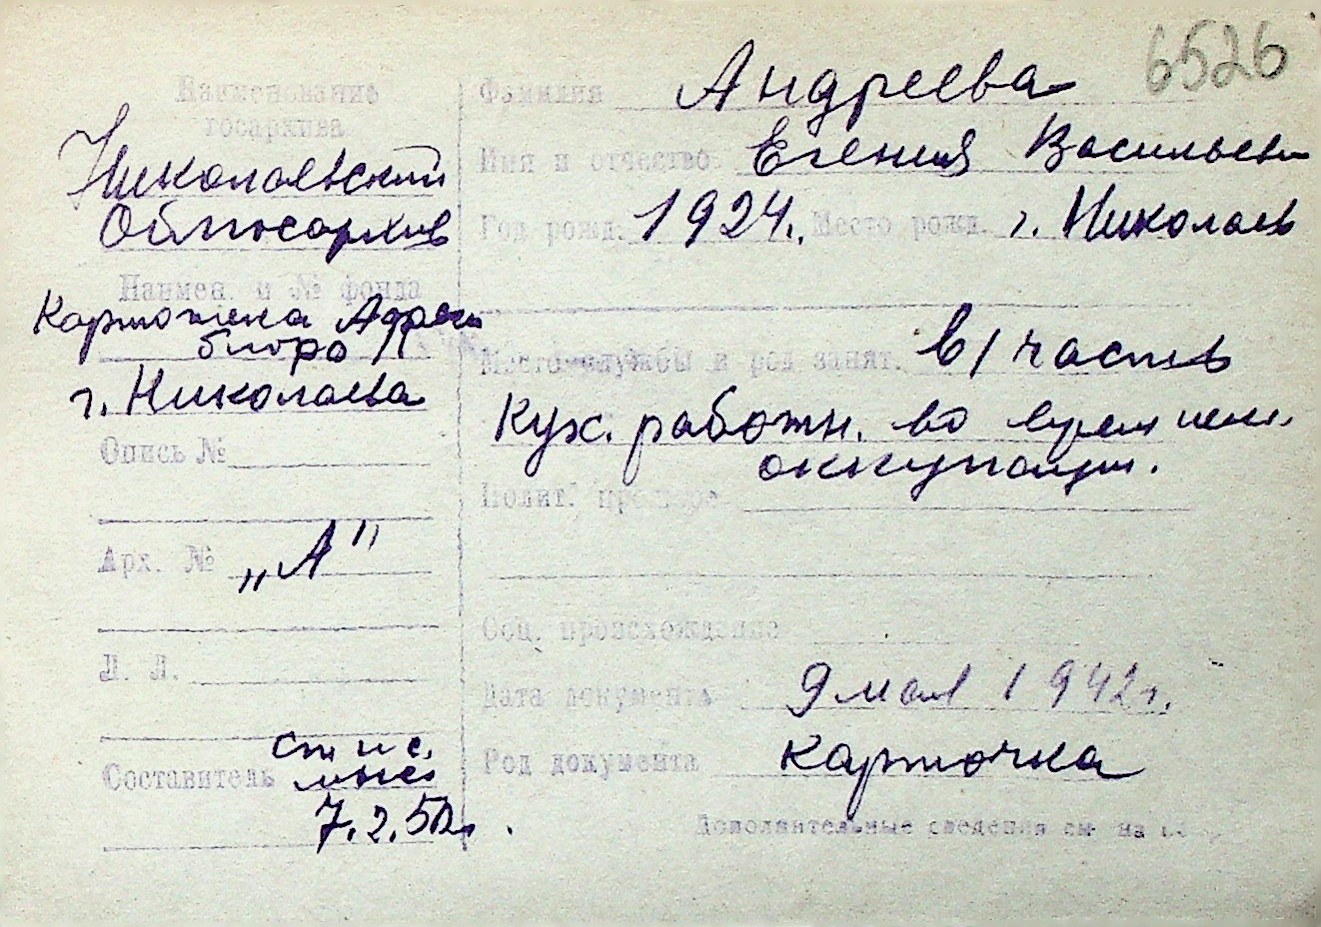 6526
Наименование
госархива
Николаевский
Облгосархив
Наимен. и № фонда
Картотека Адресн
бюро
г. Николаева
Опись №
Арх. № „А"
Л. Л.
Составитель
7.2.50г.
Фамилия Андреева
Имя и отчество Евгения Васильевн
Год рожд. 1924г. Место рожд. г. Николаев
Место службы и род занят. в/часть
Кух. работн. во время нем.
оккупации.
Полит.
Соц. происхождение
Дата документа 9 мая 1942г.
Род документа карточка
Дополнительные сведения см. на